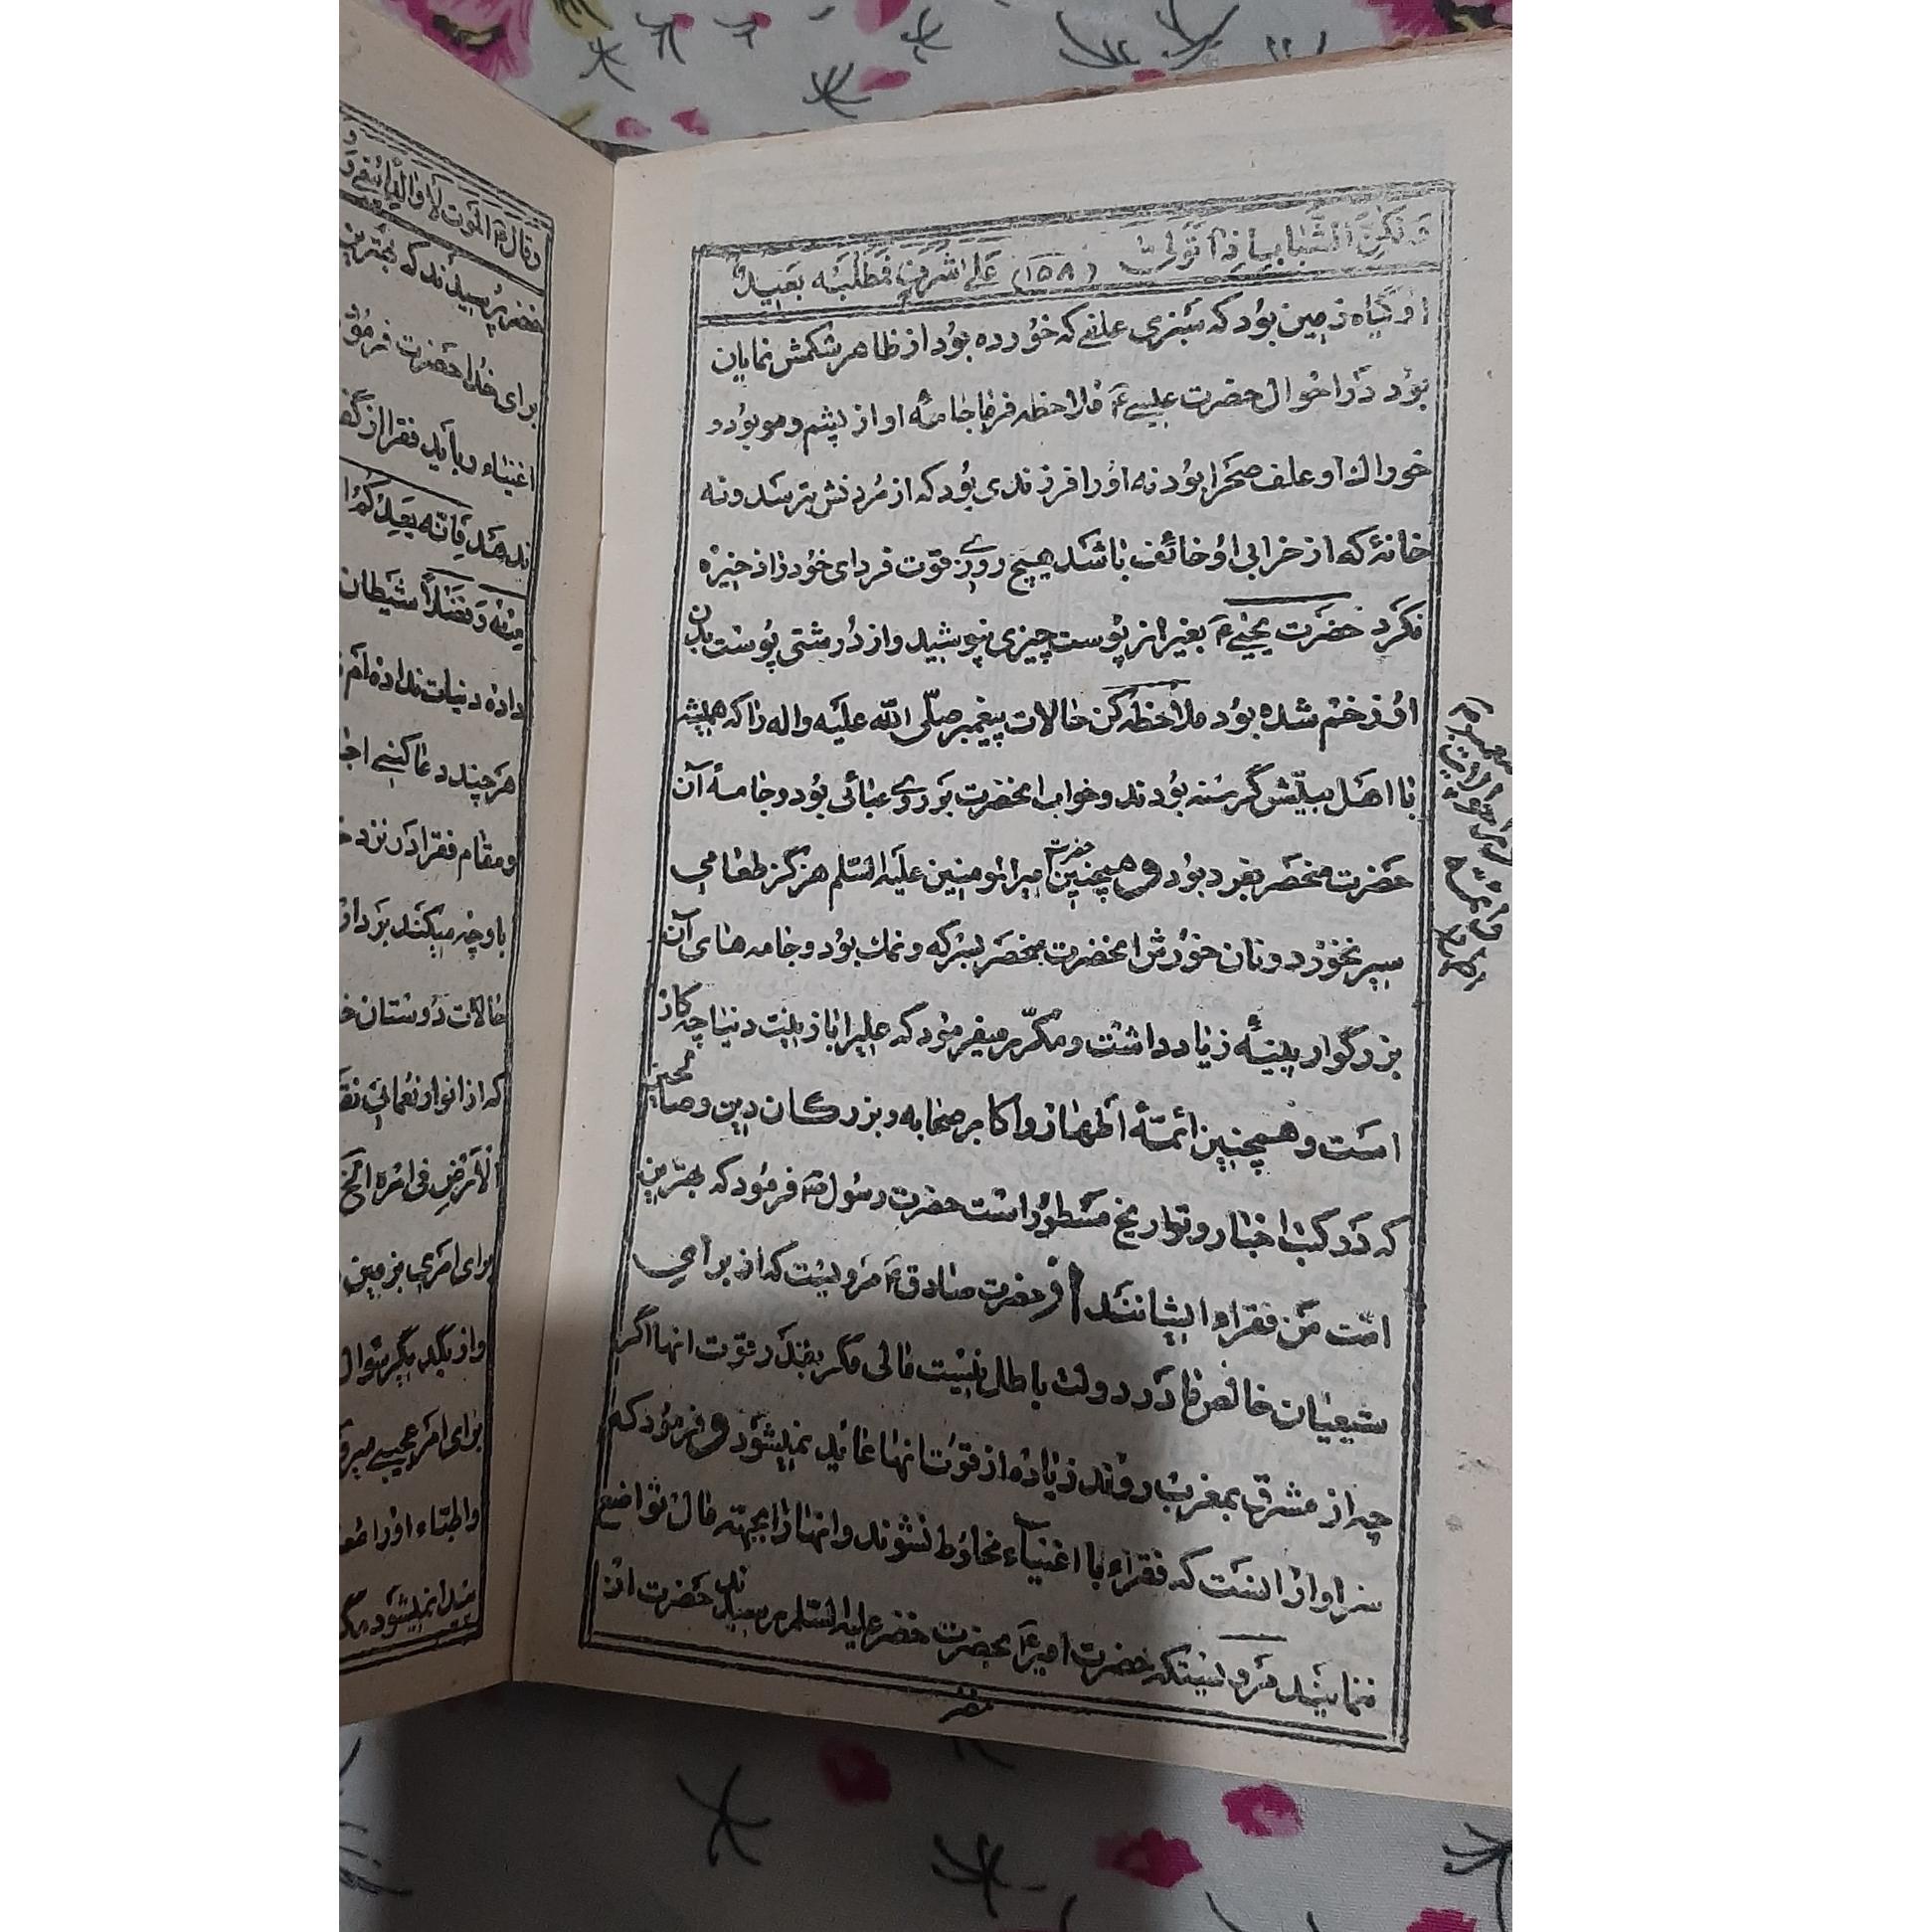 ولكن الشباب اذا تولى (۱۵۸) على شرف فمطلبه بعيد
او گیاه زمین بود که سبزی علفی که خورده بود از ظاهر شکمش نمایان
بود در احوال حضرت عیسی ع ملاحظه فرما جامهٔ او از پشم و مو بود و
خوراك او علف صحرا بود نه او را فرزندی بود که از مردنش بترسد و نه
خانهٔ که از خرابی او خائف باشد هیچ روزی قوت فردای خود را ذخیره
نکرد حضرت یحیی ع بغیر از پوست چیزی نپوشید و از درشتی پوست بدن
او زخم شده بود ملاحظه کن حالات پیغمبر صلّی الله علیه واله را که همیشه
با اهل بیتش گرسنه بودند و خواب انحضرت بر روی عبائی بود و جامهٔ آن
حضرت منحصر بفرد بود و همچنین حضرت امیرالمومنین علیه السلم هرگز طعامی
سیر نخورد و نان خورش انحضرت منحصر بسرکه و نمك بود و جامه های آن
بزرگوار پینهٔ زیاد داشت و مکرّر میفرمود که علیرا با زینت دنیا چه کار
است و همچنین ائمهٔ اطهار و اکابر صحابه و بزرگان دین و صالحین
که در کتب اخبار و تواریخ مسطور است حضرت رسول ص فرمود که بهترین
امّت من فقراء ایشانند از حضرت صادق ع مرویست که از برای
شیعیان خالص ما در دولت باطل نیست مالی مگر بقدر قوت انها اگر
چه از مشرق بمغرب روند زیاده از قوت انها عاید نمیشود و فرمود که
سزاوار انست که فقراء با اغنیاء مخلوط نشوند و انها را بجهته مال تواضع
ننمایند مرویستکه حضرت امیر ع بحضرت خضر علیه السلم رسیدند حضرت از
وقال ع الموت
خضر پرسیدند که بهترین
برای خدا حضرت فرمود
اغنیاء و باید فقرا از
ندهند فانه یعدکم
منه و فضلاً شیطان
داده دنیات نداده ام
هر چند دعا کنی
و مقام فقرا در نزد
باو چه میکنند بردار
حالات دوستان
که از انوار نعمانی
الارض فی امره
برای امری بزمین
و از یکدیگر سؤال
برای امر عجیبی
واطبّاء او را
پیدا نمیشود مگر